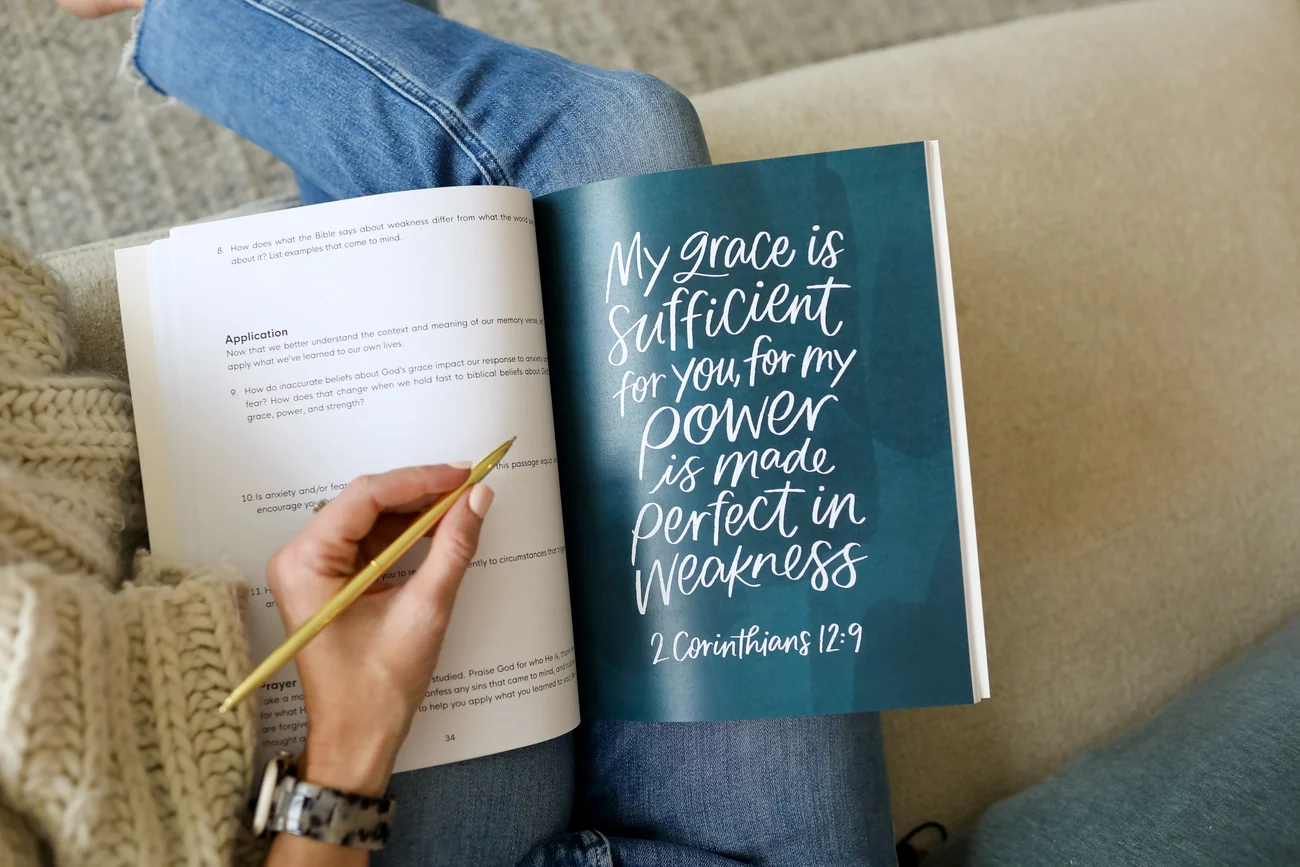 8. How does what the Bible says about weakness differ from what the world
about it? List examples that come to mind.
Application
Now that we better understand the context and meaning of our memory verse,
apply what we've learned to our own lives.
9. How do inaccurate beliefs about God's grace impact our response to anxiety
fear? How does that change when we hold fast to biblical beliefs about
grace, power, and strength?
10. Is anxiety and/or fear this passage
encourage
11.
to circumstances
Prayer
studied. Praise God for who He is,
for what any sins that came to mind, and
are to help you apply what you learned to
thought
34
My grace is
sufficient
for you, for my
power
is made
perfect in
weakness
2 Corinthians 12:9